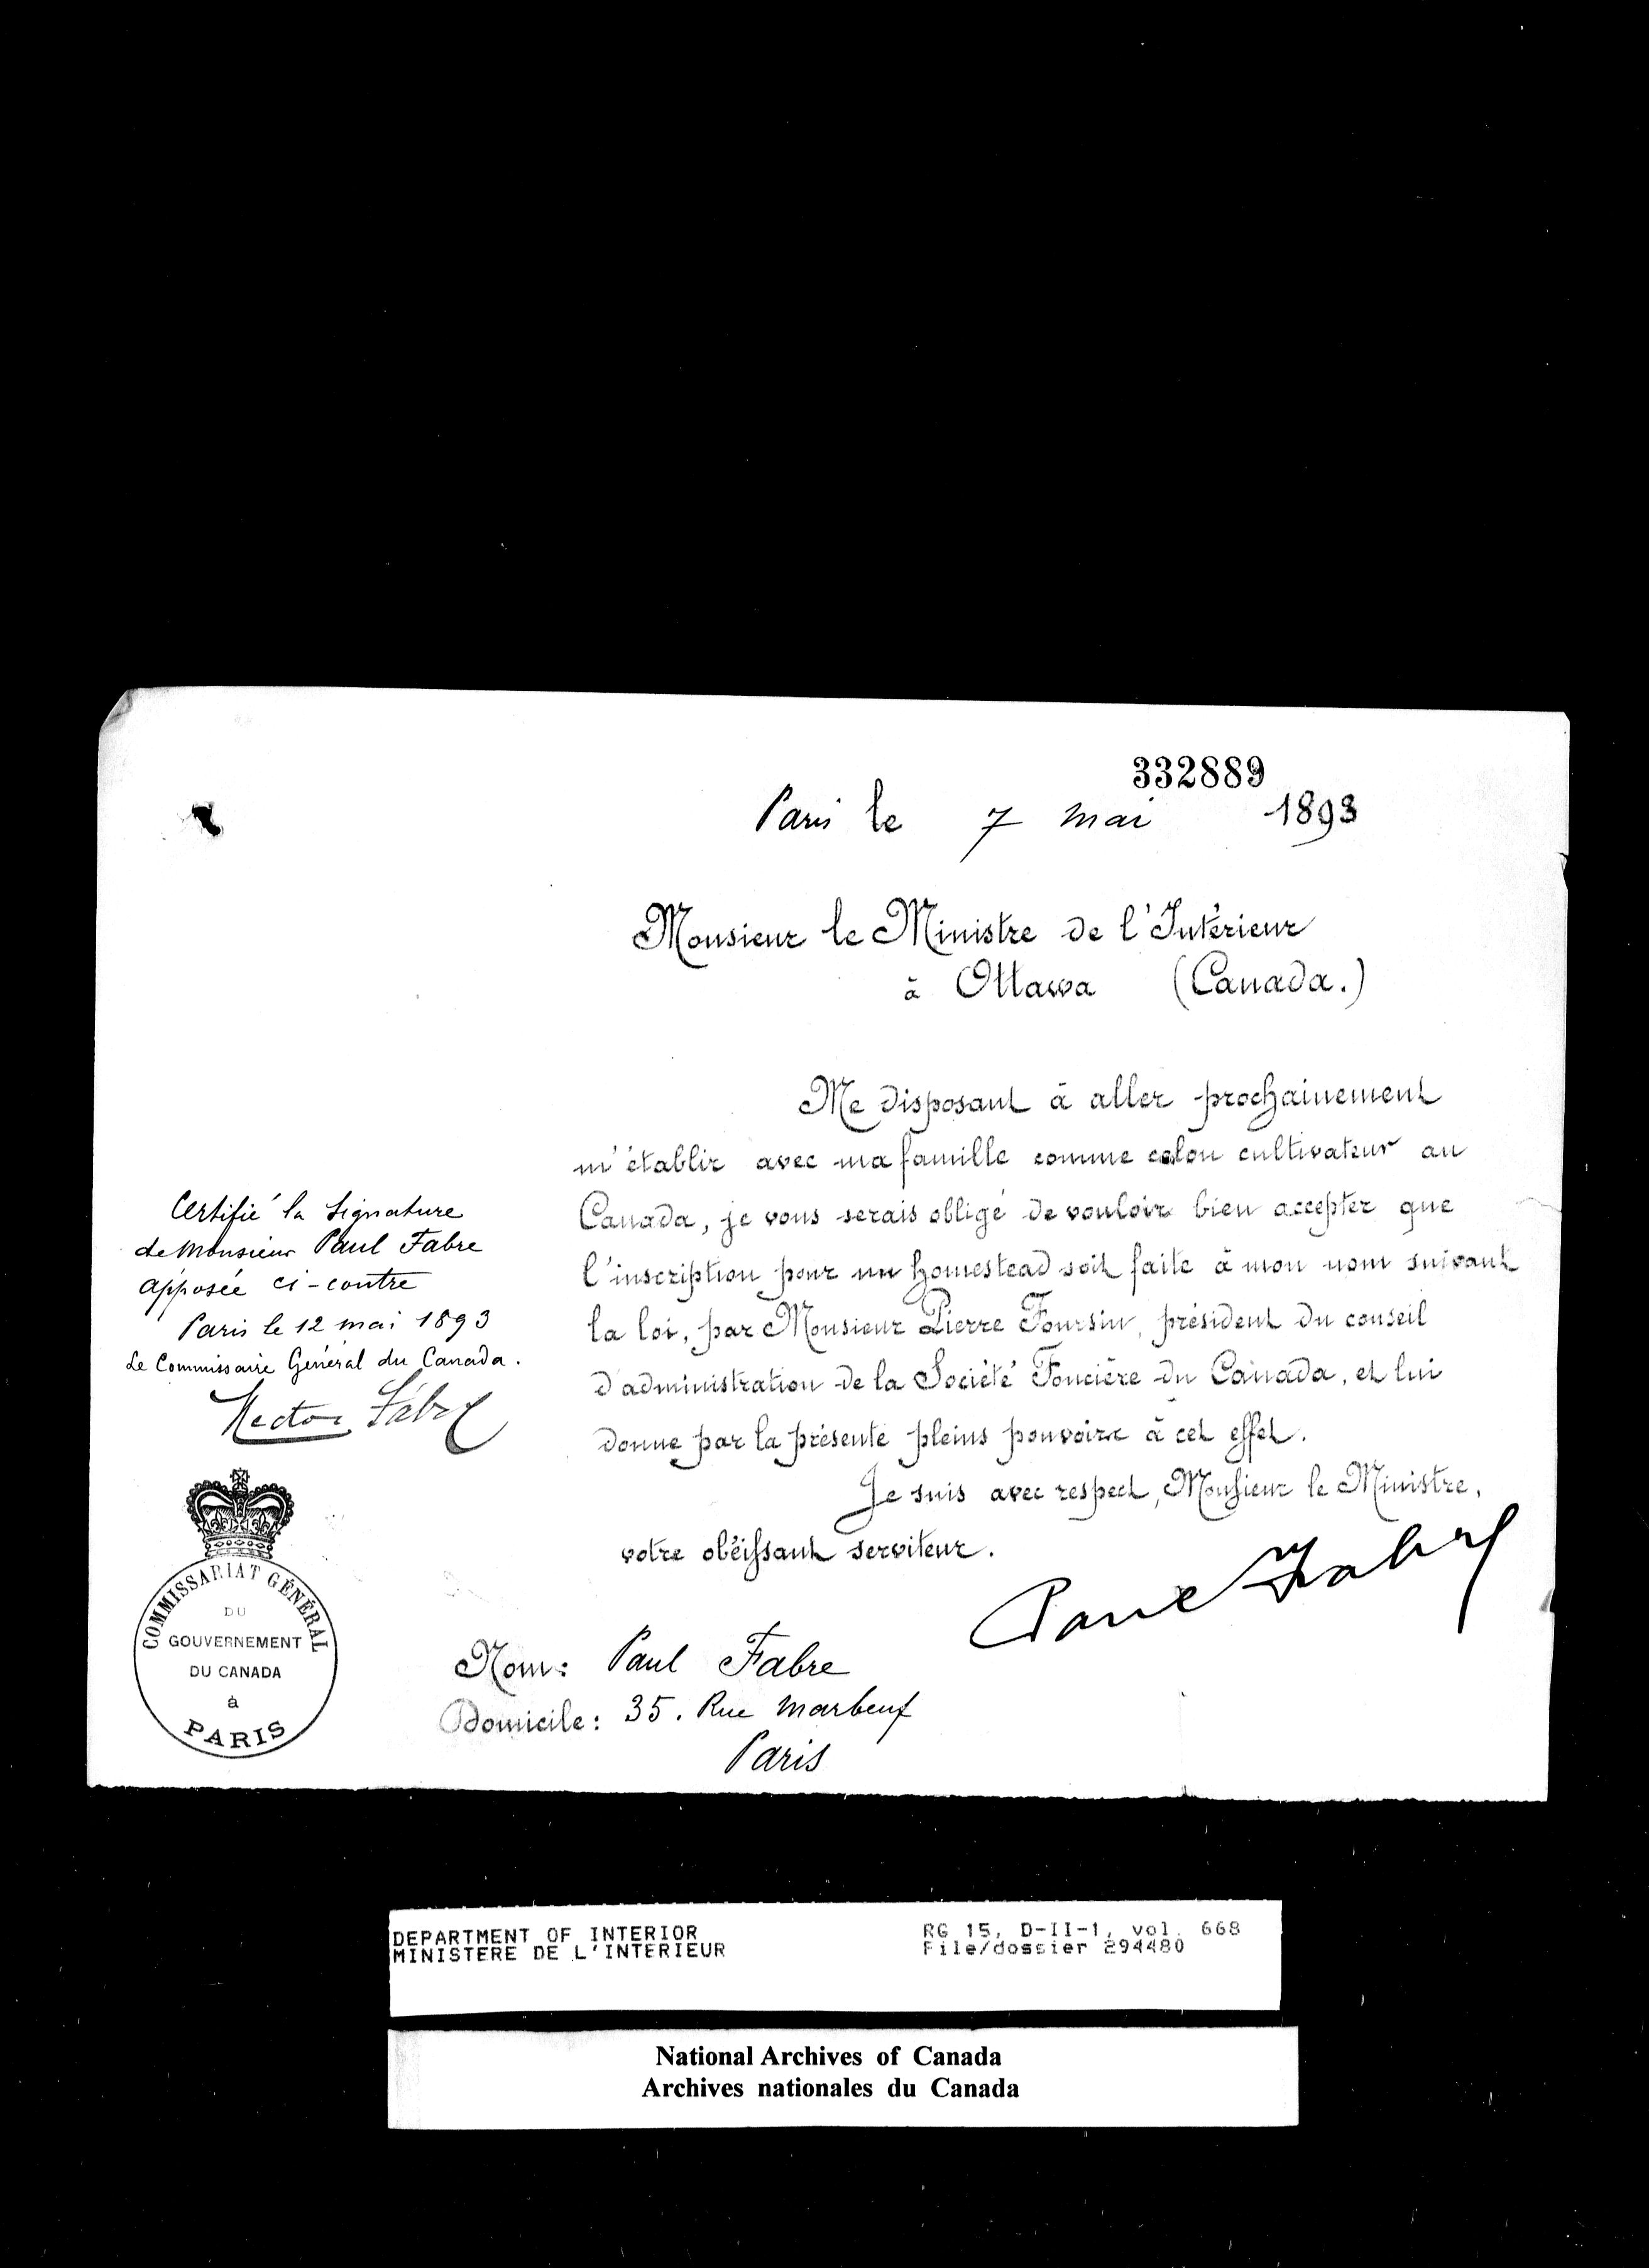 332889
Paris le 7 mai 1893
Monsieur le Ministre de l'Intérieur
à Ottawa (Canada.)
Me disposant à aller prochainement
m'établir avec ma famille comme colon cultivateur au
Canada, je vous serais obligé de vouloir bien accepter que
l'inscription pour un homestead soit faite à mon nom suivant
la loi, par Monsieur Pierre Foursin, président du conseil
d'administration de la Société Foncière du Canada, et lui
donne par la présente pleins pouvoirs à cet effet.
Je suis avec respect, Monsieur le Ministre,
votre obéissant serviteur.
Paul Fabre
Nom: Paul Fabre
Domicile: 35. Rue Marbeuf
Paris
Certifié la signature
de Monsieur Paul Fabre
apposée ci-contre
Paris le 12 mai 1893
Le Commissaire Général du Canada.
Hector Fabre
COMMISSARIAT GÉNÉRAL
DU
GOUVERNEMENT
DU CANADA
à
PARIS
DEPARTMENT OF INTERIOR
MINISTERE DE L'INTERIEUR
RG 15, D-II-1, vol. 668
File/dossier 294480
National Archives of Canada
Archives nationales du Canada